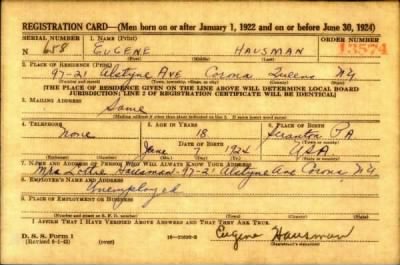 REGISTRATION CARD—(Men born on or after January 1, 1922 and on or before June 30, 1924)
SERIAL NUMBER 1. NAME (Print) ORDER NUMBER
N 658 EUGENE HAUSMAN 13574
(First) (Middle) (Last)
2. PLACE OF RESIDENCE (Print)
97-21 Alstyne Ave Corona Queens N.Y.
(Number and street) (Town, township, village, or city) (County) (State)
[THE PLACE OF RESIDENCE GIVEN ON THE LINE ABOVE WILL DETERMINE LOCAL BOARD
JURISDICTION; LINE 2 OF REGISTRATION CERTIFICATE WILL BE IDENTICAL]
3. MAILING ADDRESS
Same
[Mailing address if other than place indicated on line 2. If same, insert word same]
4. TELEPHONE 5. AGE IN YEARS 6. PLACE OF BIRTH
None 18 Scranton PA
DATE OF BIRTH
June 7 1924 USA
(Mo.) (Day) (Yr.)
7. NAME AND ADDRESS OF PERSON WHO WILL ALWAYS KNOW YOUR ADDRESS
Mrs Lottie Hausman - 97-21 Alstyne Ave Corona N.Y.
8. EMPLOYER'S NAME AND ADDRESS
Unemployed
9. PLACE OF EMPLOYMENT OR BUSINESS
(Number and street or R. F. D. number) (Town) (County) (State)
I AFFIRM THAT I HAVE VERIFIED ABOVE ANSWERS AND THAT THEY ARE TRUE.
D. S. S. Form 1
Eugene Hausman